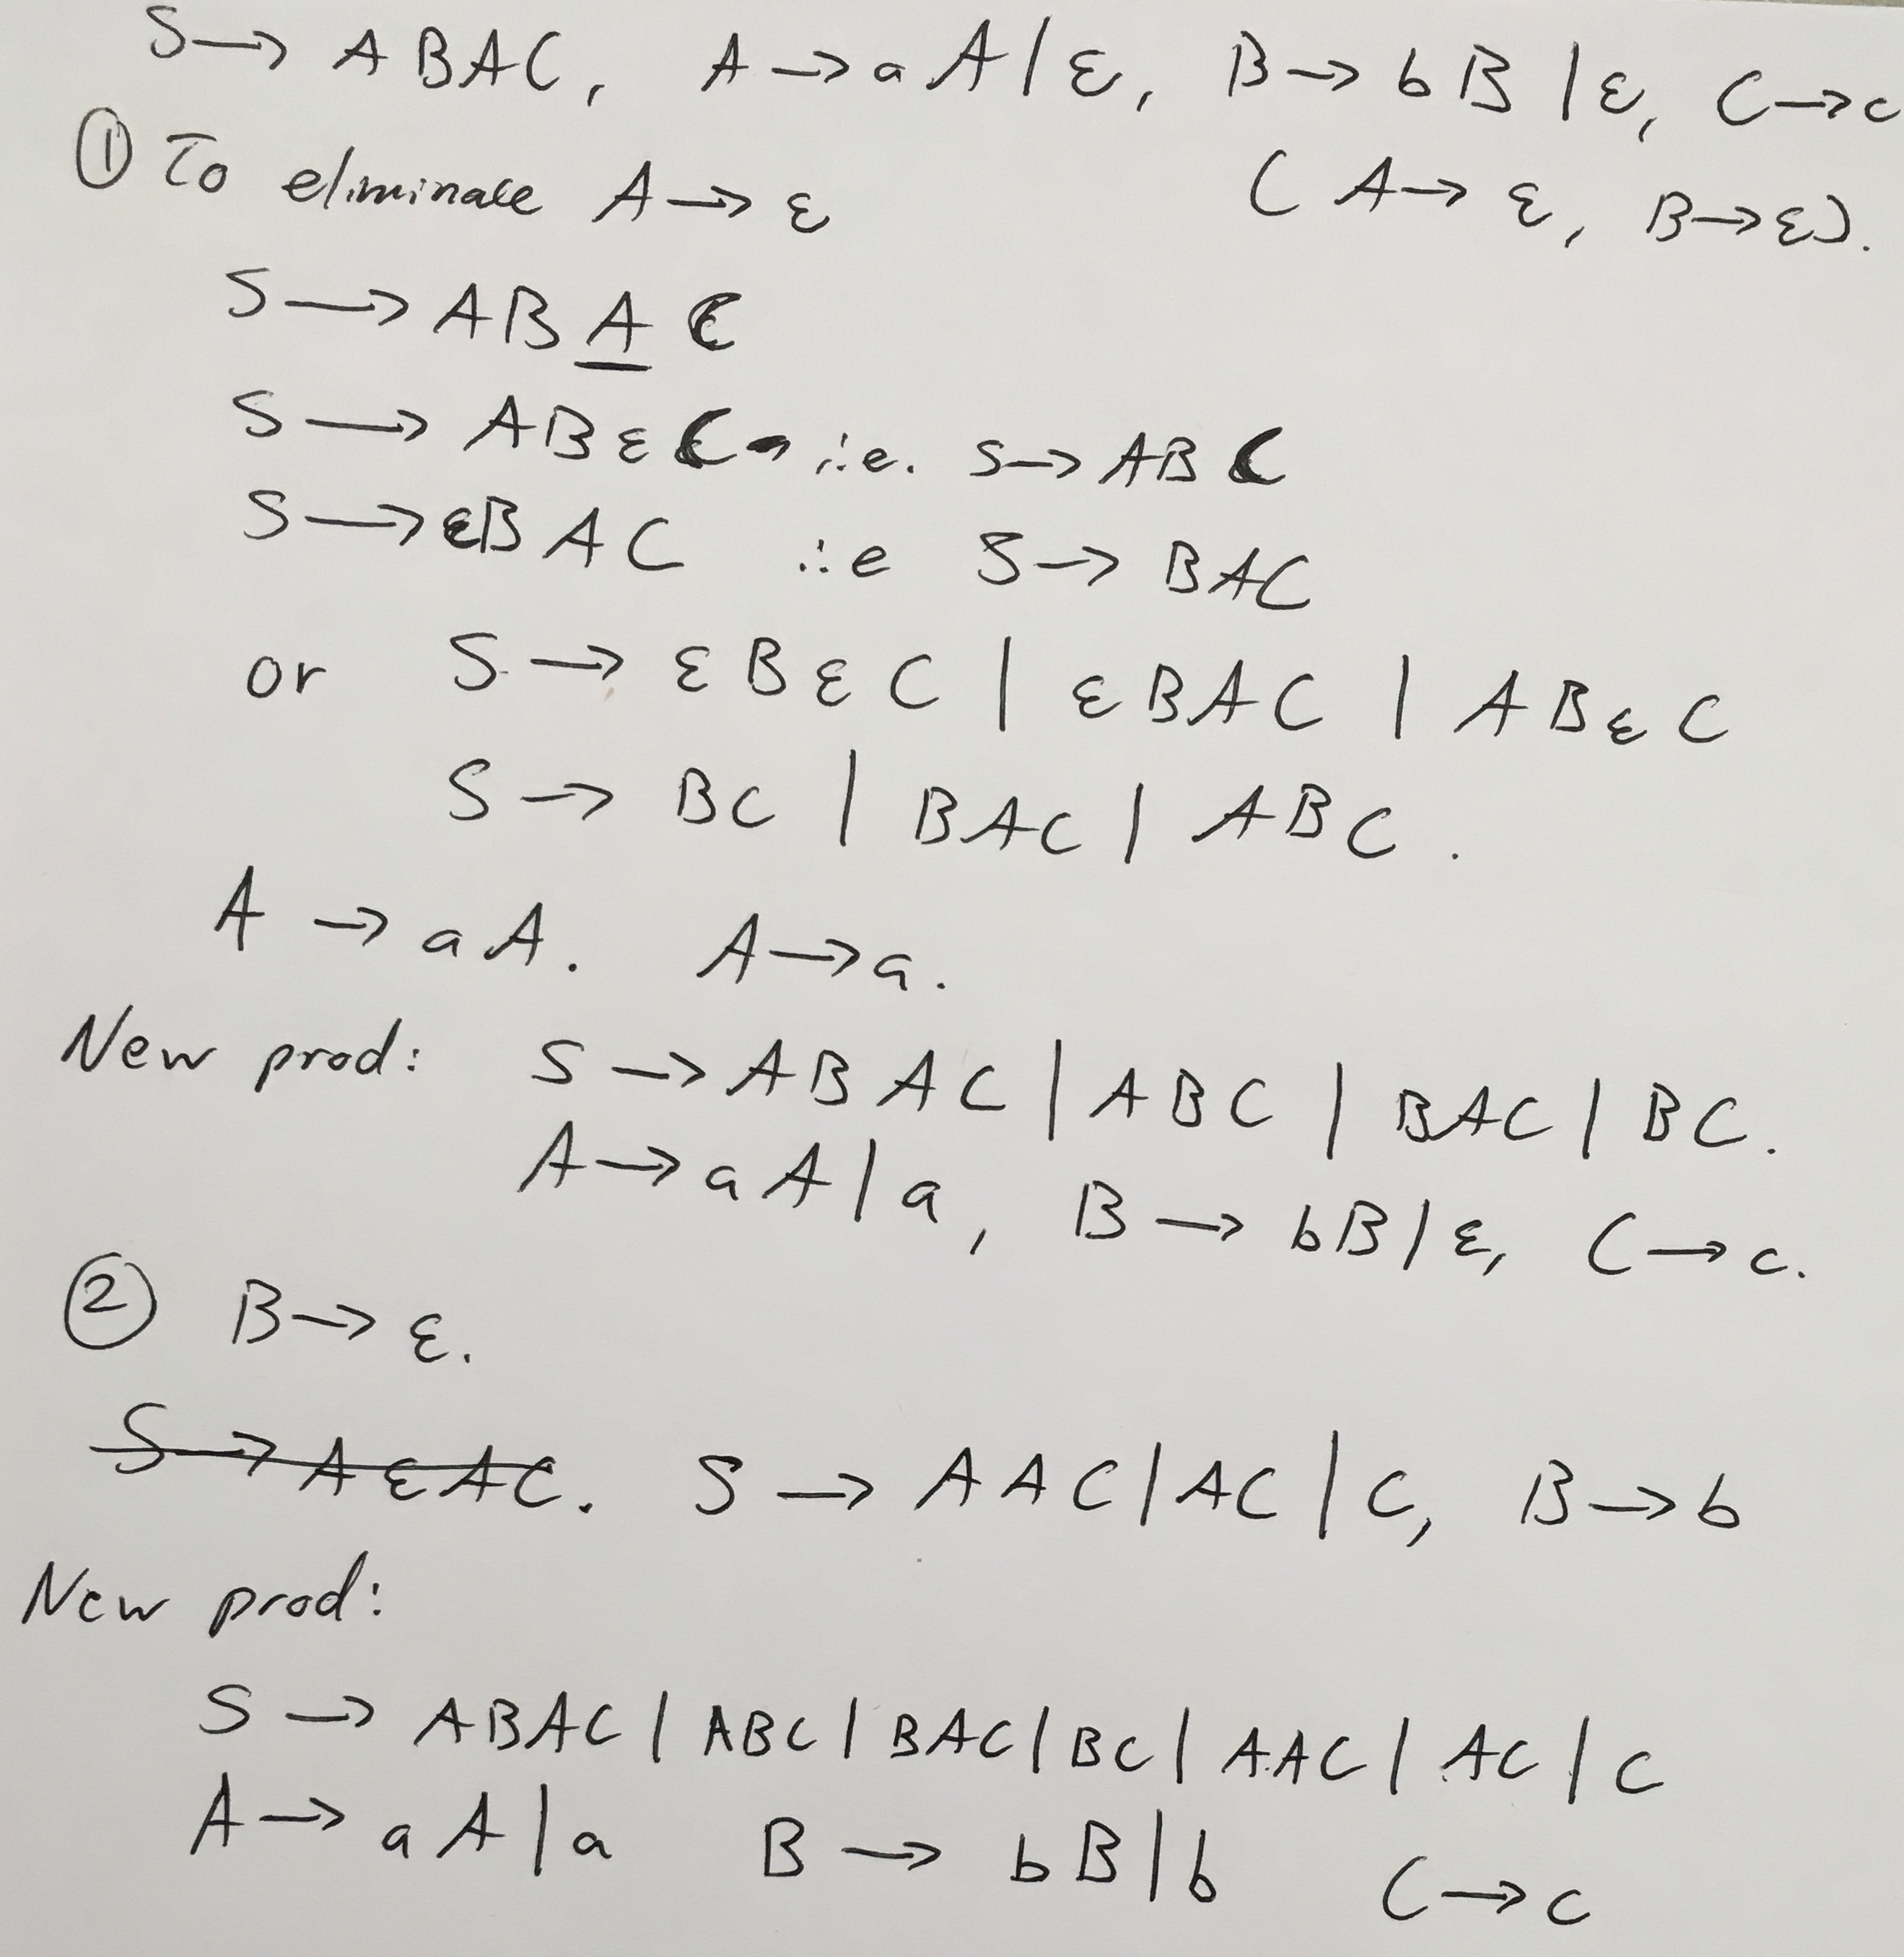 S → ABAC, A → aA | ε, B → bB | ε, C → c
① To eliminate A → ε (A → ε, B → ε).
S → ABAC
S → ABεC i.e. S → ABC
S → εBAC i.e S → BAC
or S → εBεC | εBAC | ABεC
S → BC | BAC | ABC.
A → aA. A → a.
New prod: S → ABAC | ABC | BAC | BC.
A → aA | a, B → bB | ε, C → c.
② B → ε.
S → AεAC. S → AAC | AC | C, B → b
New prod:
S → ABAC | ABC | BAC | BC | AAC | AC | C
A → aA | a B → bB | b C → c